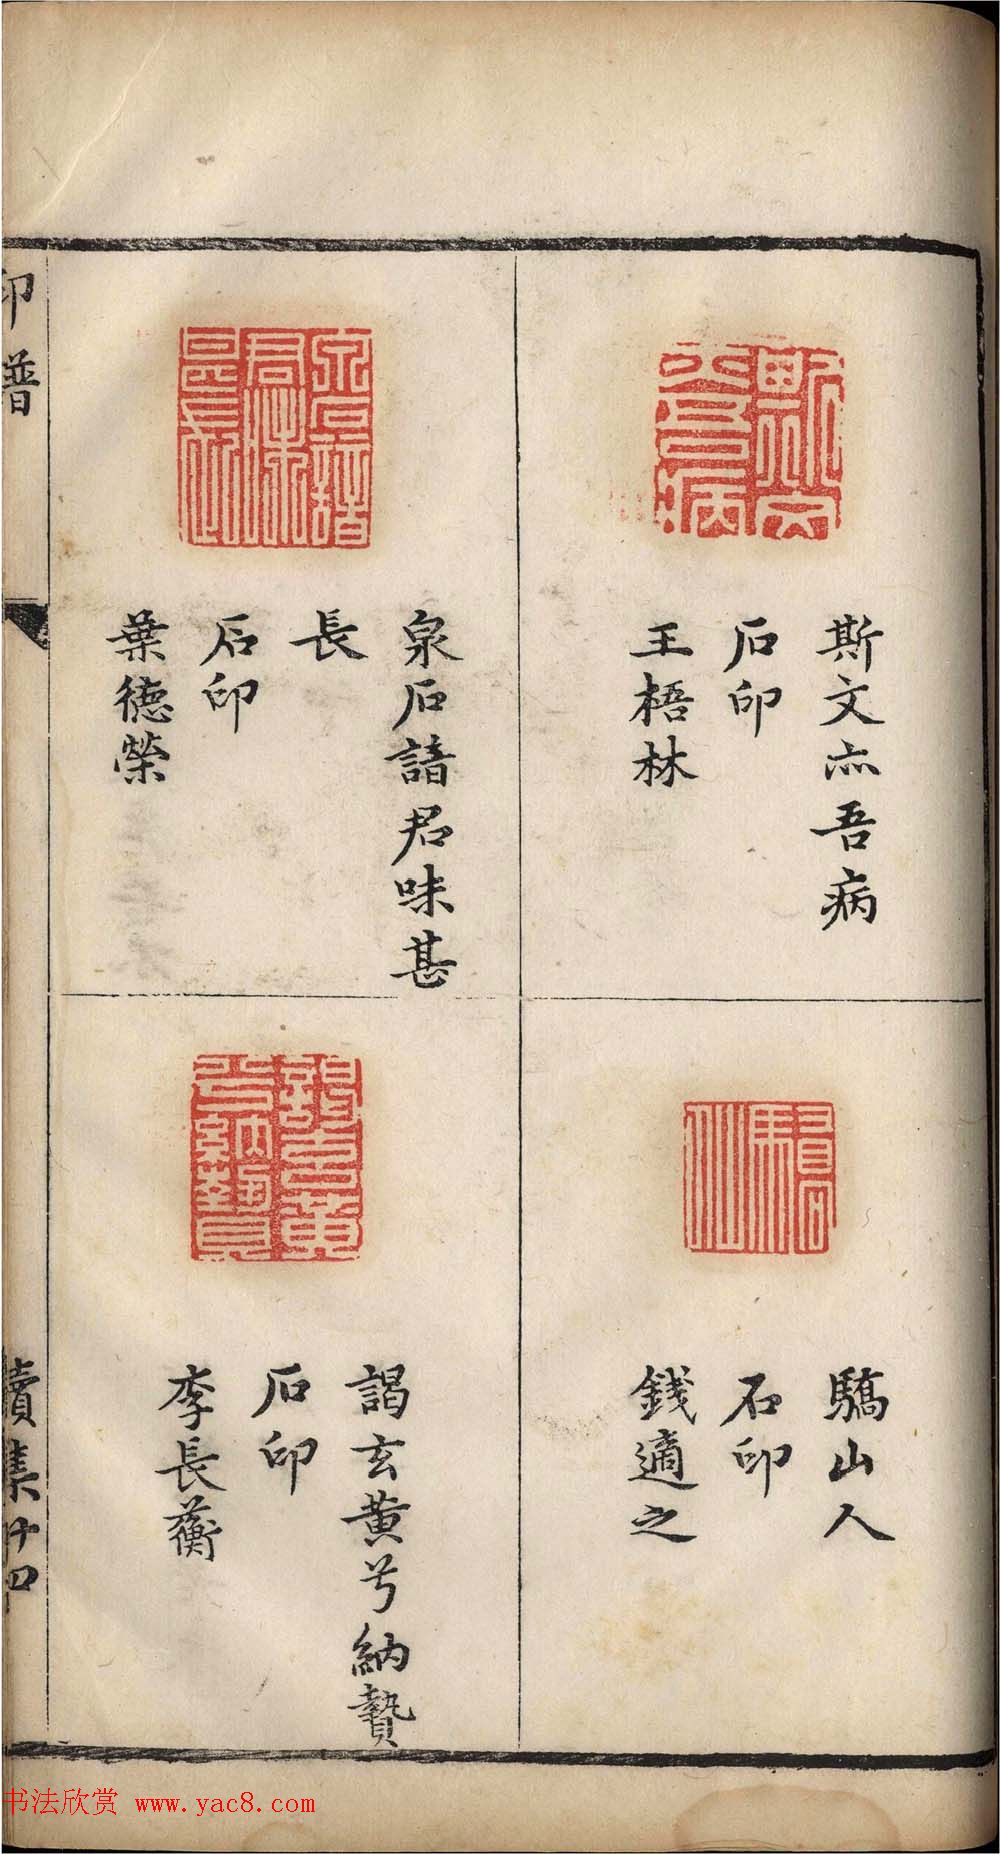 斯文亦吾病
石印
王梧林
驕山人
石印
錢適之
泉石諳君味甚
長
石印
葉德榮
謁玄黃兮納贄
石印
李長蘅
印譜
續集
十四
书法欣赏 www.yac8.com